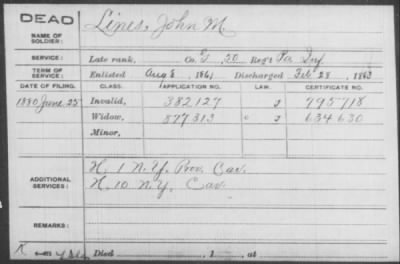 DEAD
NAME OF SOLDIER: Lines, John M
SERVICE: Late rank, Co. G, 50 Reg't Pa Inf
TERM OF SERVICE: Enlisted Aug 8, 1861 Discharged Feb 28, 1863
DATE OF FILING. CLASS. APPLICATION NO. LAW. CERTIFICATE NO.
1880 June 25 Invalid, 382127 795718
Widow, 877313 634630
Minor,
ADDITIONAL SERVICES: H. 1 N.Y. Prov. Cav.
H. 10 N.Y. Cav.
REMARKS:
Died 1 , at